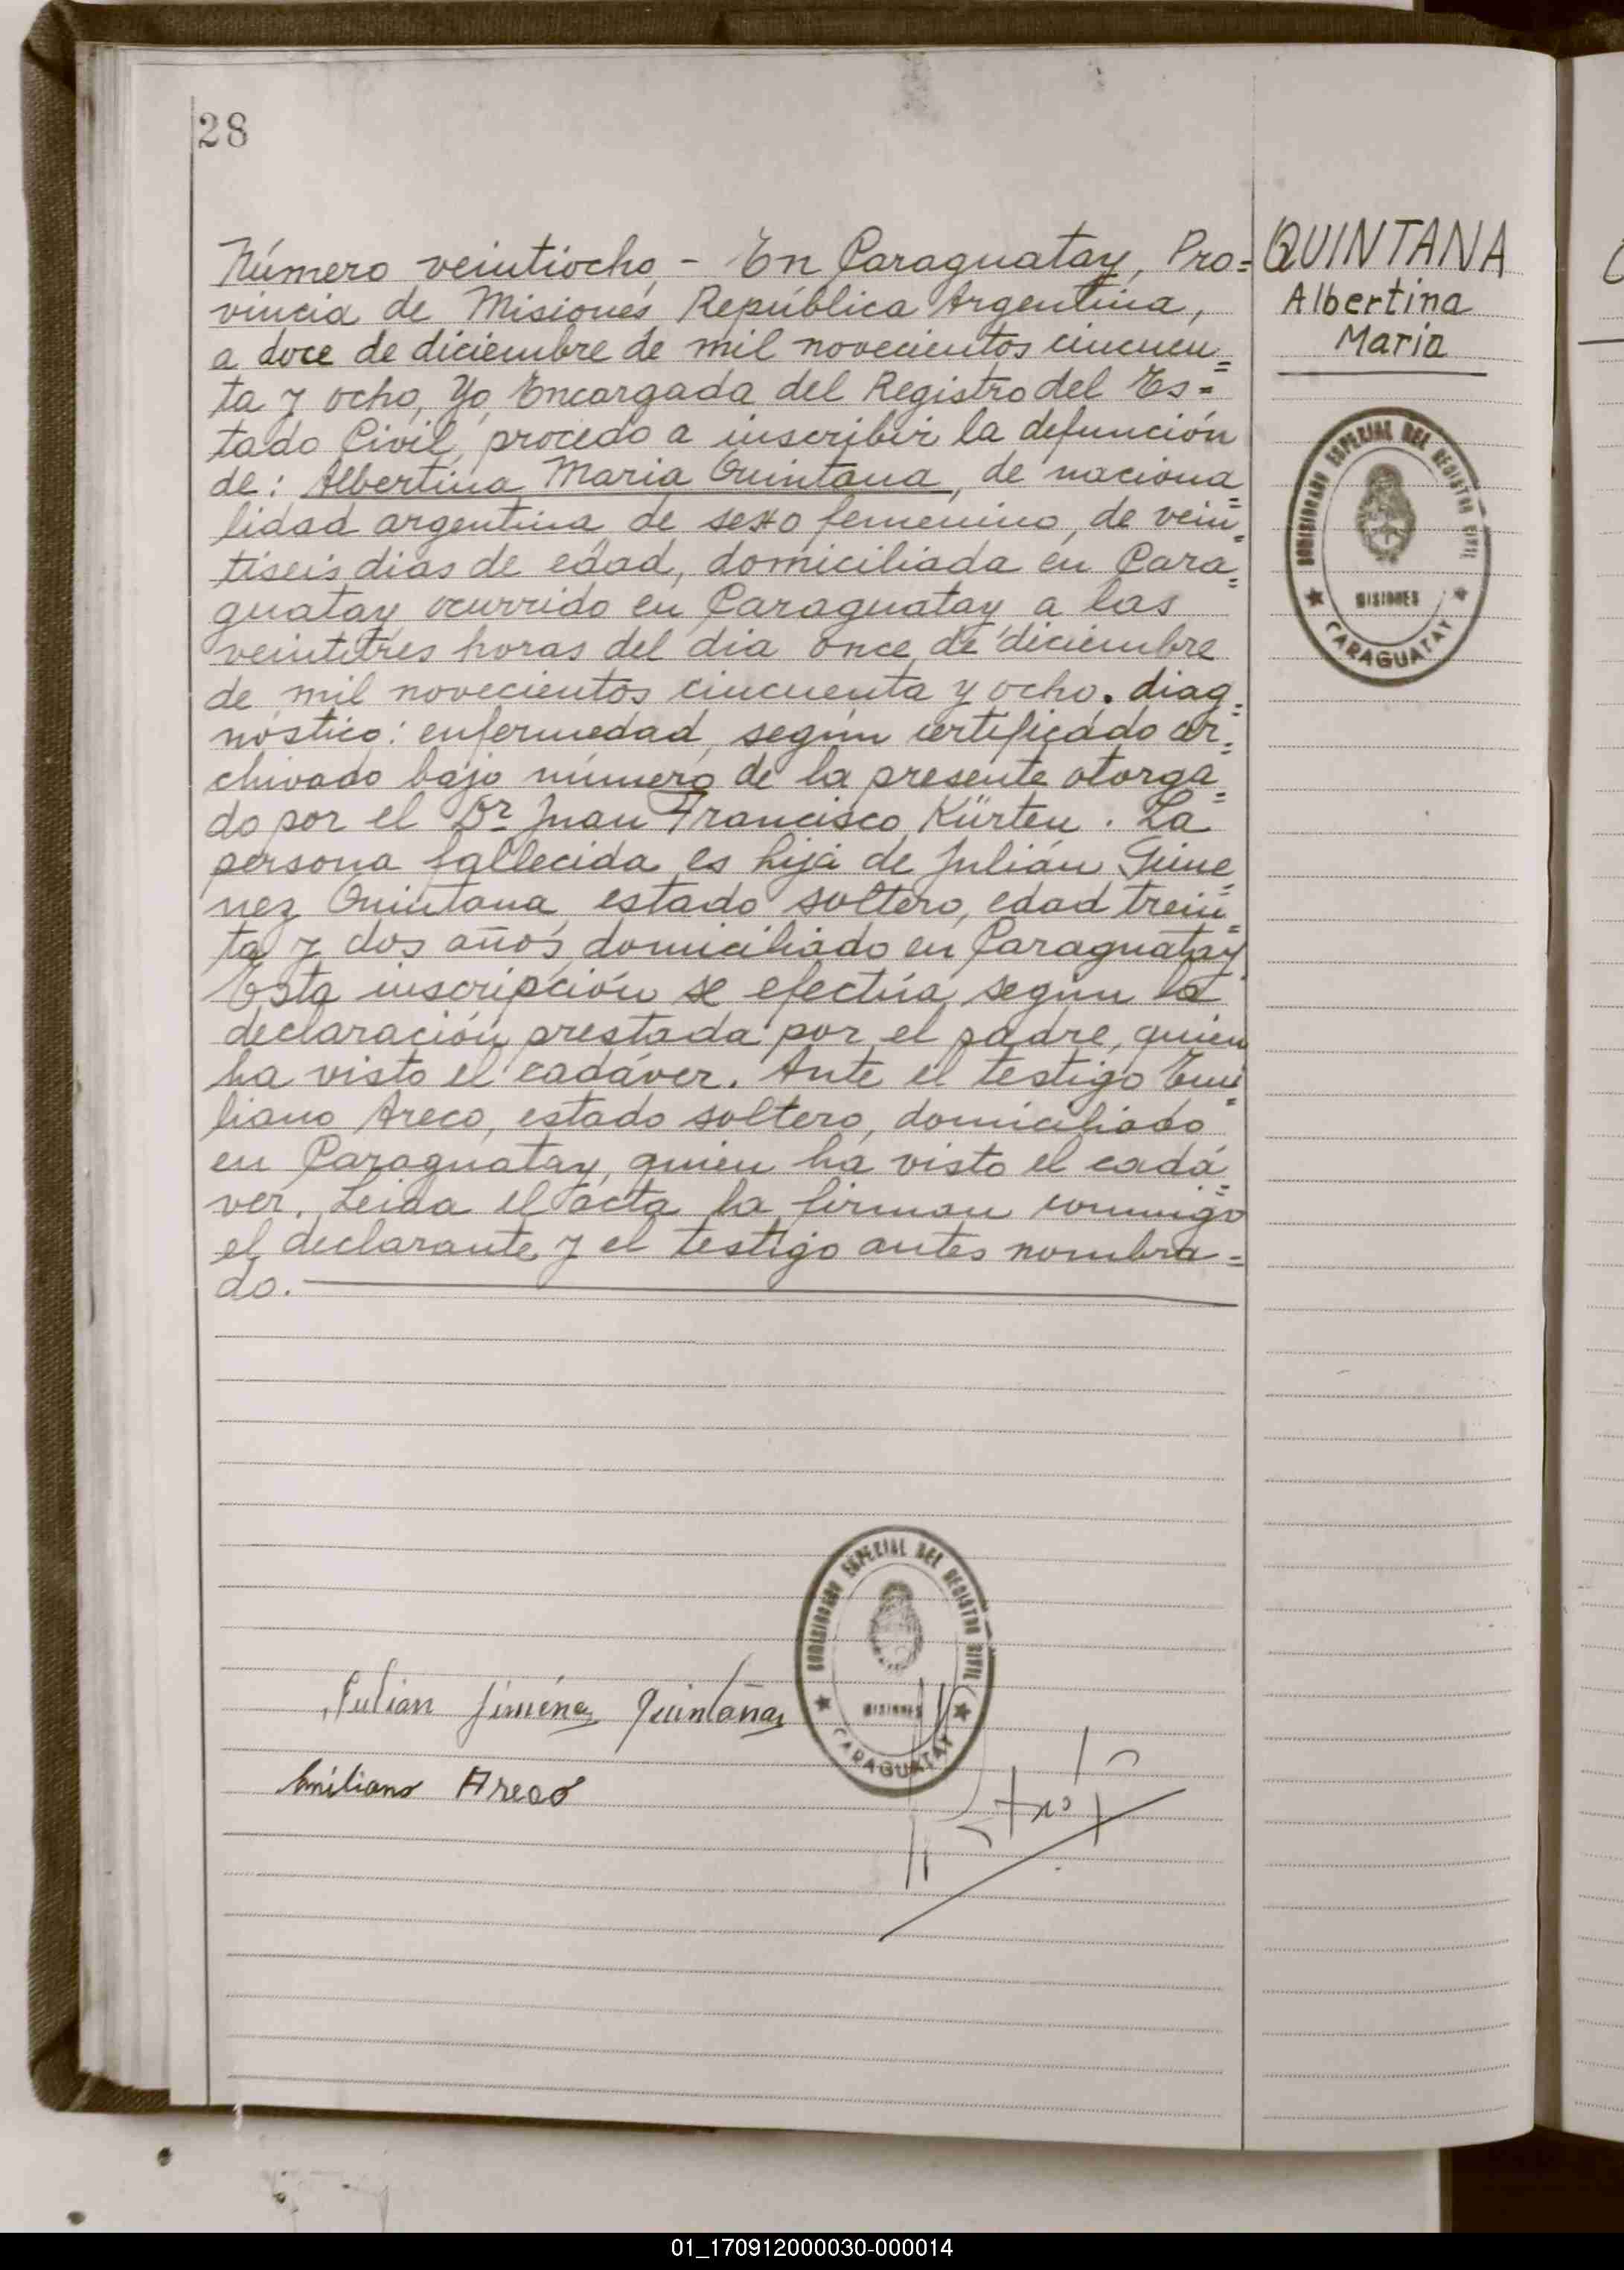 28
Número veintiocho - En Caraguatay, Pro=
vincia de Misiones República Argentina,
a doce de diciembre de mil novecientos cincuen=
ta y ocho, Yo, Encargada del Registro del Es=
tado Civil, procedo a inscribir la defunción
de: Albertina Maria Quintana, de naciona=
lidad argentina, de sexo femenino, de vein=
tiseis dias de edad, domiciliada en Cara=
guatay ocurrido en Caraguatay a las
veintitres horas del dia once de diciembre
de mil novecientos cincuenta y ocho. diag=
nóstico: enfermedad, según certificado ar=
chivado bajo número de la presente otorga=
do por el Dr Juan Francisco Kürten. La
persona fallecida es hija de Julián Gime=
nez Quintana, estado soltero, edad trein=
ta y dos años, domiciliado en Caraguatay
Esta inscripción se efectúa según la
declaración prestada por el padre, quien
ha visto el cadáver. Ante el testigo Emi=
liano Areco, estado soltero, domiciliado
en Caraguatay, quien ha visto el cadá=
ver. Leida el acta la firman conmigo
el declarante y el testigo antes nombra=
do.
QUINTANA
Albertina
Maria
COMISIONADO ESPECIAL DEL REGISTRO CIVIL
MISIONES
CARAGUATAY
Julián Jiménez Quintana
Emiliano Areco
COMISIONADO ESPECIAL DEL REGISTRO CIVIL
MISIONES
CARAGUATAY
01_170912000030-000014